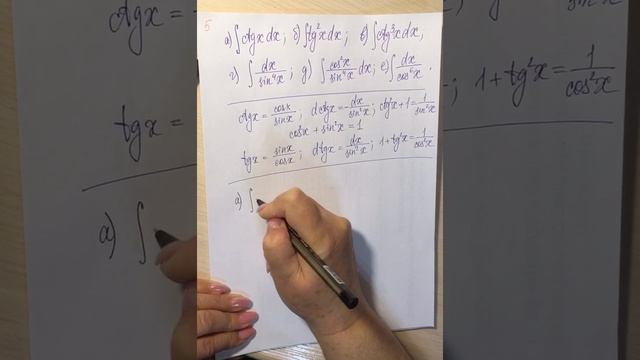 5
а) ∫ctgx dx; б) ∫tg²x dx; в) ∫ctg³x dx;
г) ∫dx/sin⁴x; д) ∫cos²x/sin⁴x dx; е) ∫dx/cos⁶x.
ctgx = cosx/sinx; dctgx = -dx/sin²x; ctg²x+1 = 1/sin²x
cos²x + sin²x = 1
tgx = sinx/cosx; dtgx = dx/sin²x; 1+tg²x = 1/cos²x
а) ∫